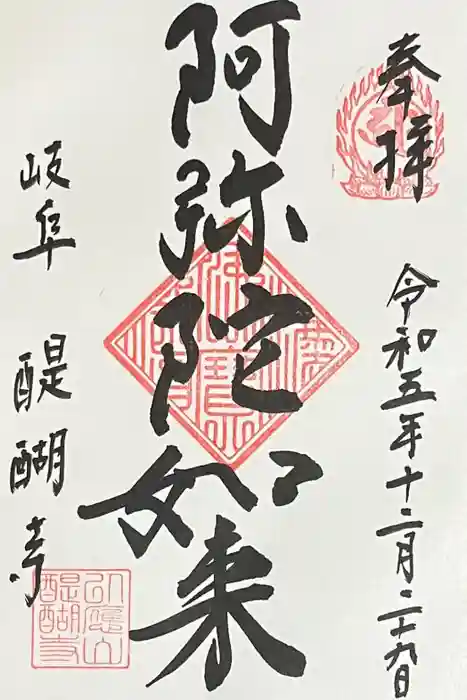 奉拝
令和五年十二月二十九日
阿弥陀如来
岐阜 醍醐寺
醍醐寺